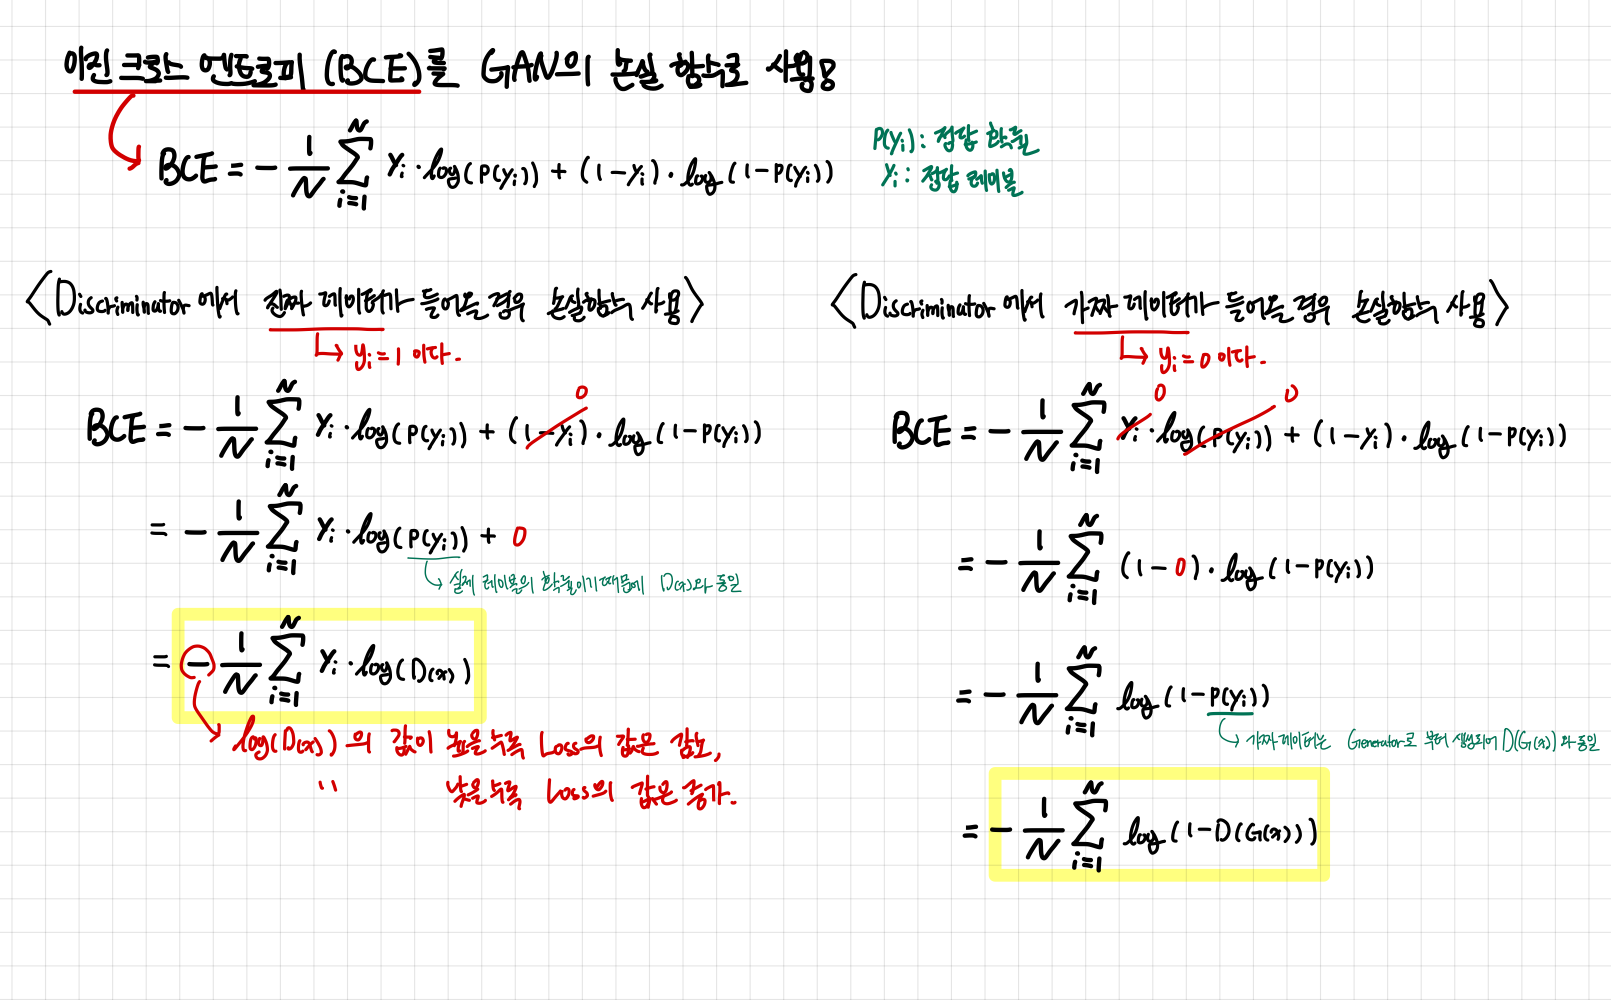 이진 크로스 엔트로피 (BCE)를 GAN의 손실 함수로 사용함
BCE = - 1/N Σ_{i=1}^{N} y_i · log(P(y_i)) + (1-y_i) · log(1-P(y_i))
P(y_i) : 정답 확률
y_i : 정답 레이블
<Discriminator 에서 진짜 데이터가 들어올 경우 손실함수 사용>
→ y_i = 1 이다.
BCE = - 1/N Σ_{i=1}^{N} y_i · log(P(y_i)) + (1-y_i) · log(1-P(y_i))
0
= - 1/N Σ_{i=1}^{N} y_i · log(P(y_i)) + 0
→ 실제 레이블의 확률이기 때문에 D(x)와 동일
= - 1/N Σ_{i=1}^{N} y_i · log(D(x))
→ log(D(x)) 의 값이 높을수록 Loss의 값은 감소,
'' 낮을수록 Loss의 값은 증가.
<Discriminator 에서 가짜 데이터가 들어올 경우 손실함수 사용>
→ y_i = 0 이다.
0 0
BCE = - 1/N Σ_{i=1}^{N} y_i · log(P(y_i)) + (1-y_i) · log(1-P(y_i))
= - 1/N Σ_{i=1}^{N} (1-0) · log(1-P(y_i))
= - 1/N Σ_{i=1}^{N} log(1-P(y_i))
→ 가짜 데이터는 Generator로 부터 생성되어 D(G(z)) 와 동일
= - 1/N Σ_{i=1}^{N} log(1-D(G(z)))